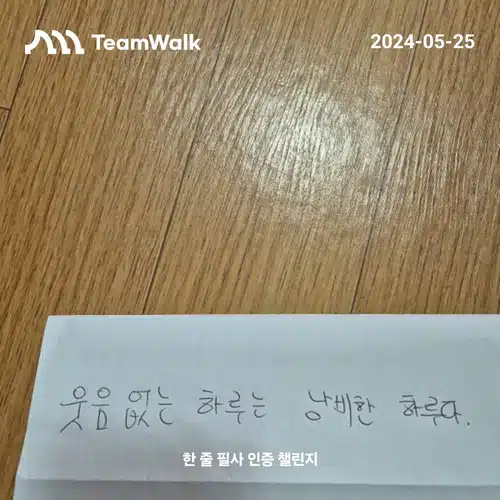 TeamWalk
2024-05-25
웃음 없는 하루는 낭비한 하루다.
한 줄 필사 인증 챌린지